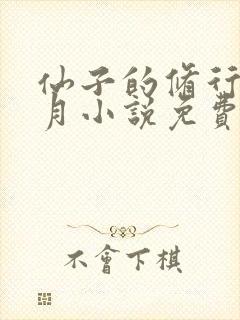 仙子的脩行
月小説免費
不會下棋